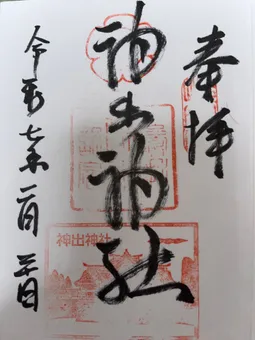 奉拝
神出神社
令和七年二月日
神出神社